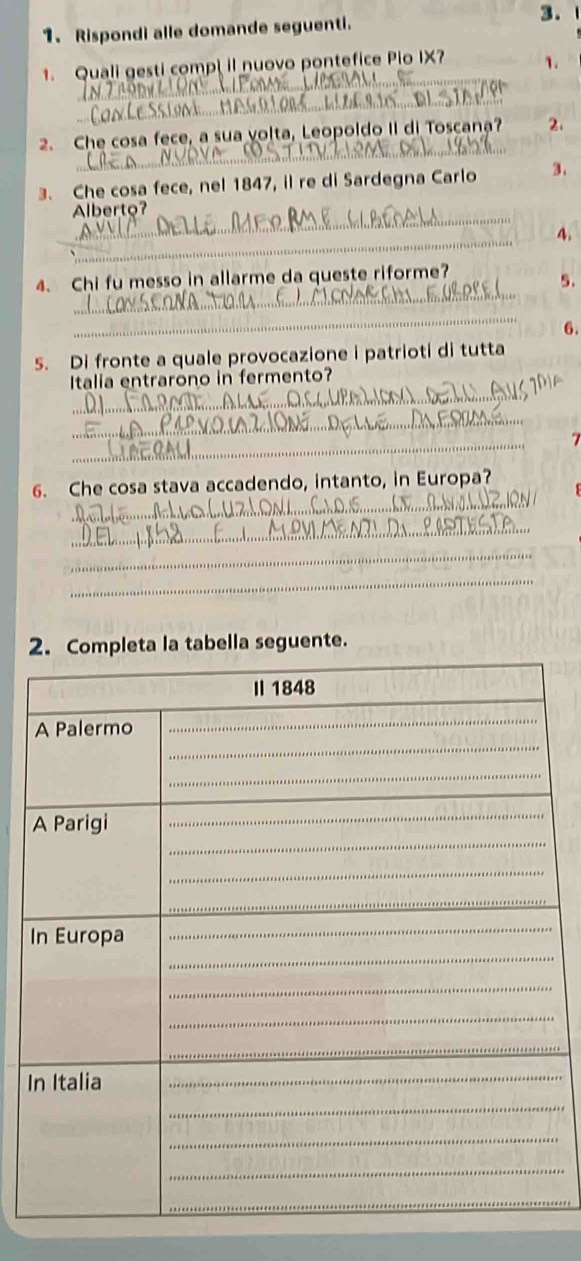 3.
1. Rispondi alle domande seguenti.
1. Quali gesti compì il nuovo pontefice Pio IX?
1.
INTRODUZIONE RIFORME LIBERALI E
CONCESSIONI MAGGIORE LIBERTÀ DI STAMPA
2. Che cosa fece, a sua volta, Leopoldo II di Toscana?
2.
CREA NUOVA COSTITUZIONE DEL 1848
3. Che cosa fece, nel 1847, il re di Sardegna Carlo
3.
Alberto?
AVVIA DELLE RIFORME LIBERALI
4.
4. Chi fu messo in allarme da queste riforme?
5.
I CONSERVATORI E I MONARCHI EUROPEI
6.
5. Di fronte a quale provocazione i patrioti di tutta
Italia entrarono in fermento?
DI FRONTE ALLE OCCUPAZIONI DELL' AUSTRIA
E LA PROVOCAZIONE DELLE RIFORME
LIBERALI
7
6. Che cosa stava accadendo, intanto, in Europa?
DELLE RIVOLUZIONI CIOE LE RIVOLUZIONI
DEL 1848 E I MOVIMENTI DI PROTESTA
2. Completa la tabella seguente.
Il 1848
A Palermo
A Parigi
In Europa
In Italia